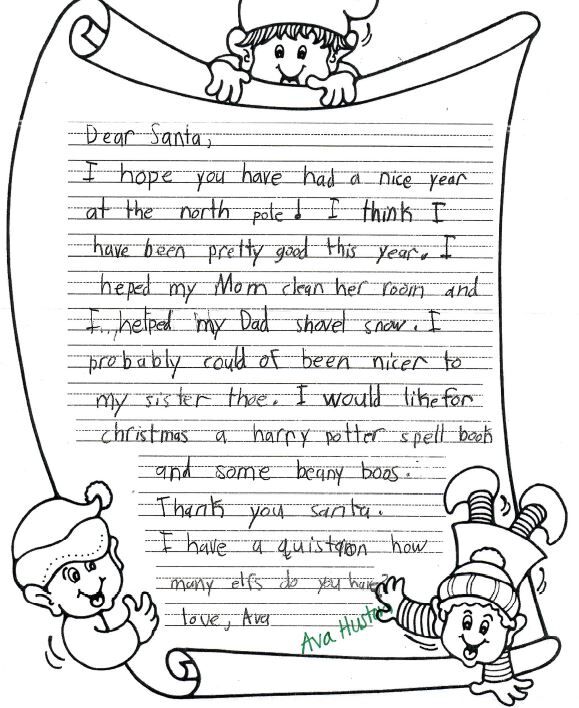 Dear Santa,
I hope you have had a nice year
at the north pole! I think I
have been pretty good this year. I
heped my Mom clean her room and
I helped my Dad shovel snow. I
probably could of been nicer to
my sister thoe. I would like for
christmas a harry potter spell book
and some beany boos.
Thank you santa.
I have a quistion how
many elfs do you have?
love, Ava
Ava Husta